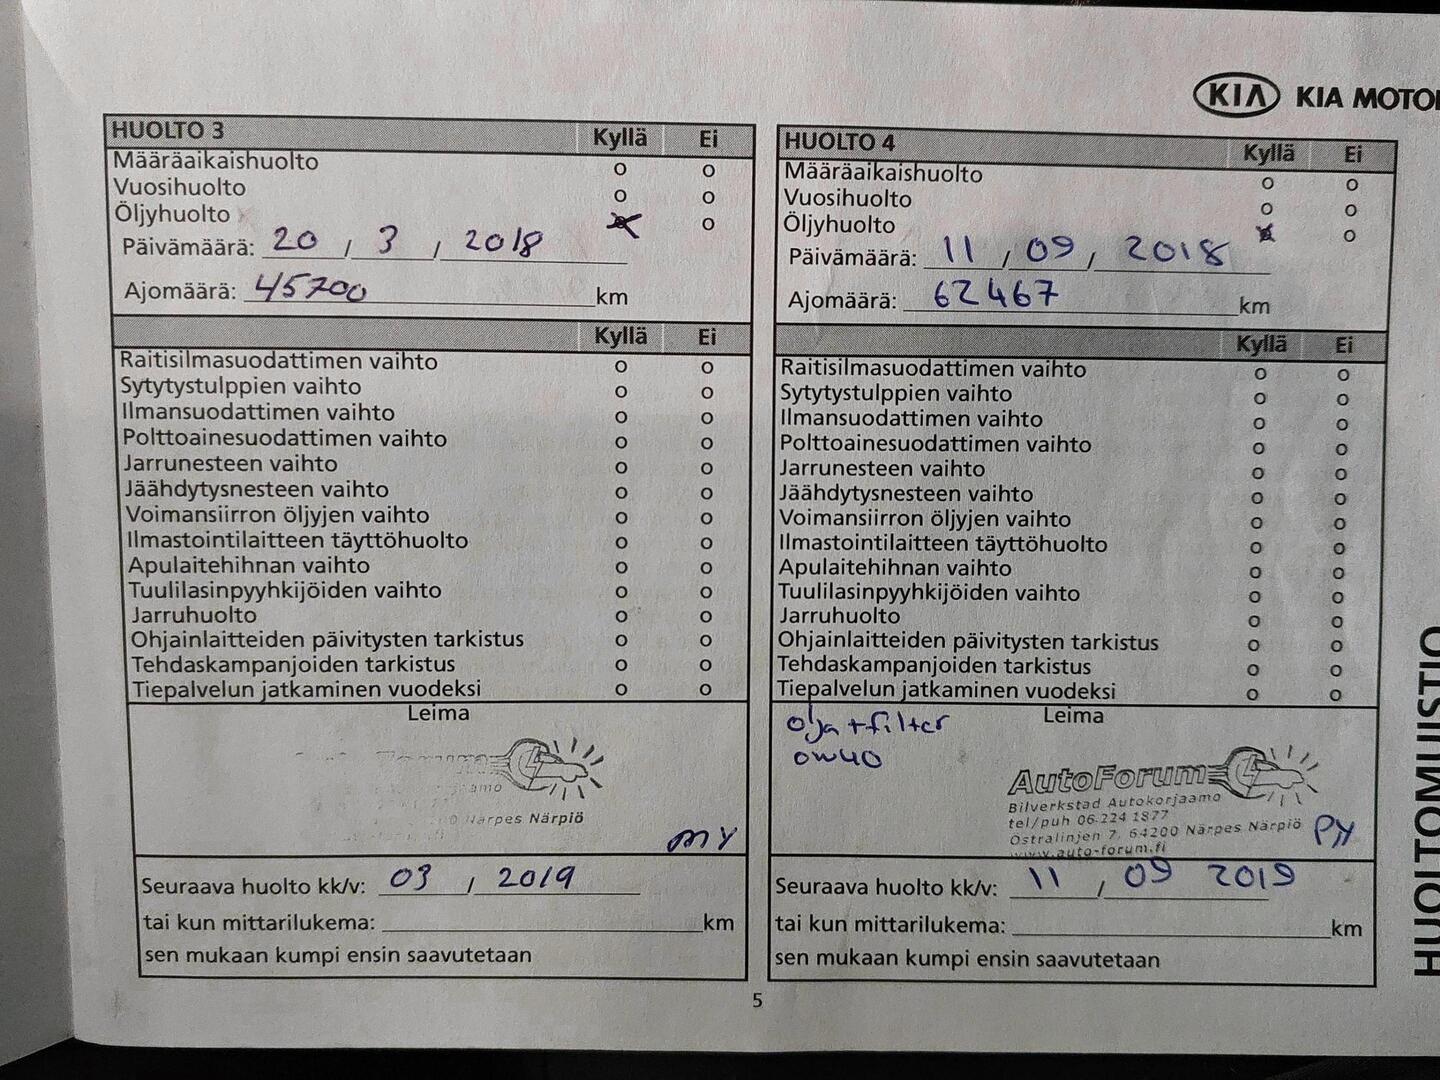 KIA KIA MOTOR
HUOLTO 3 Kyllä Ei
Määräaikaishuolto o o
Vuosihuolto o o
Öljyhuolto o
Päivämäärä: 20 / 3 / 2018
Ajomäärä: 45700 km
Kyllä Ei
Raitisilmasuodattimen vaihto o o
Sytytystulppien vaihto o o
Ilmansuodattimen vaihto o o
Polttoainesuodattimen vaihto o o
Jarrunesteen vaihto o o
Jäähdytysnesteen vaihto o o
Voimansiirron öljyjen vaihto o o
Ilmastointilaitteen täyttöhuolto o o
Apulaitehihnan vaihto o o
Tuulilasinpyyhkijöiden vaihto o o
Jarruhuolto o o
Ohjainlaitteiden päivitysten tarkistus o o
Tehdaskampanjoiden tarkistus o o
Tiepalvelun jatkaminen vuodeksi o o
Leima
Närpes Närpiö
MY
Seuraava huolto kk/v: 03 / 2019
tai kun mittarilukema: km
sen mukaan kumpi ensin saavutetaan
HUOLTO 4 Kyllä Ei
Määräaikaishuolto o o
Vuosihuolto o o
Öljyhuolto o
Päivämäärä: 11 / 09 / 2018
Ajomäärä: 62467 km
Kyllä Ei
Raitisilmasuodattimen vaihto o o
Sytytystulppien vaihto o o
Ilmansuodattimen vaihto o o
Polttoainesuodattimen vaihto o o
Jarrunesteen vaihto o o
Jäähdytysnesteen vaihto o o
Voimansiirron öljyjen vaihto o o
Ilmastointilaitteen täyttöhuolto o o
Apulaitehihnan vaihto o o
Tuulilasinpyyhkijöiden vaihto o o
Jarruhuolto o o
Ohjainlaitteiden päivitysten tarkistus o o
Tehdaskampanjoiden tarkistus o o
Tiepalvelun jatkaminen vuodeksi o o
Leima
olja + filter
0w40
AutoForum
Bilverkstad Autokorjaamo
tel/puh 06-224 1877
Östralinjen 7, 64200 Närpes Närpiö
www.auto-forum.fi
Seuraava huolto kk/v: 11 / 09 2019
tai kun mittarilukema: km
sen mukaan kumpi ensin saavutetaan
5
HUOLTOMUISTIO